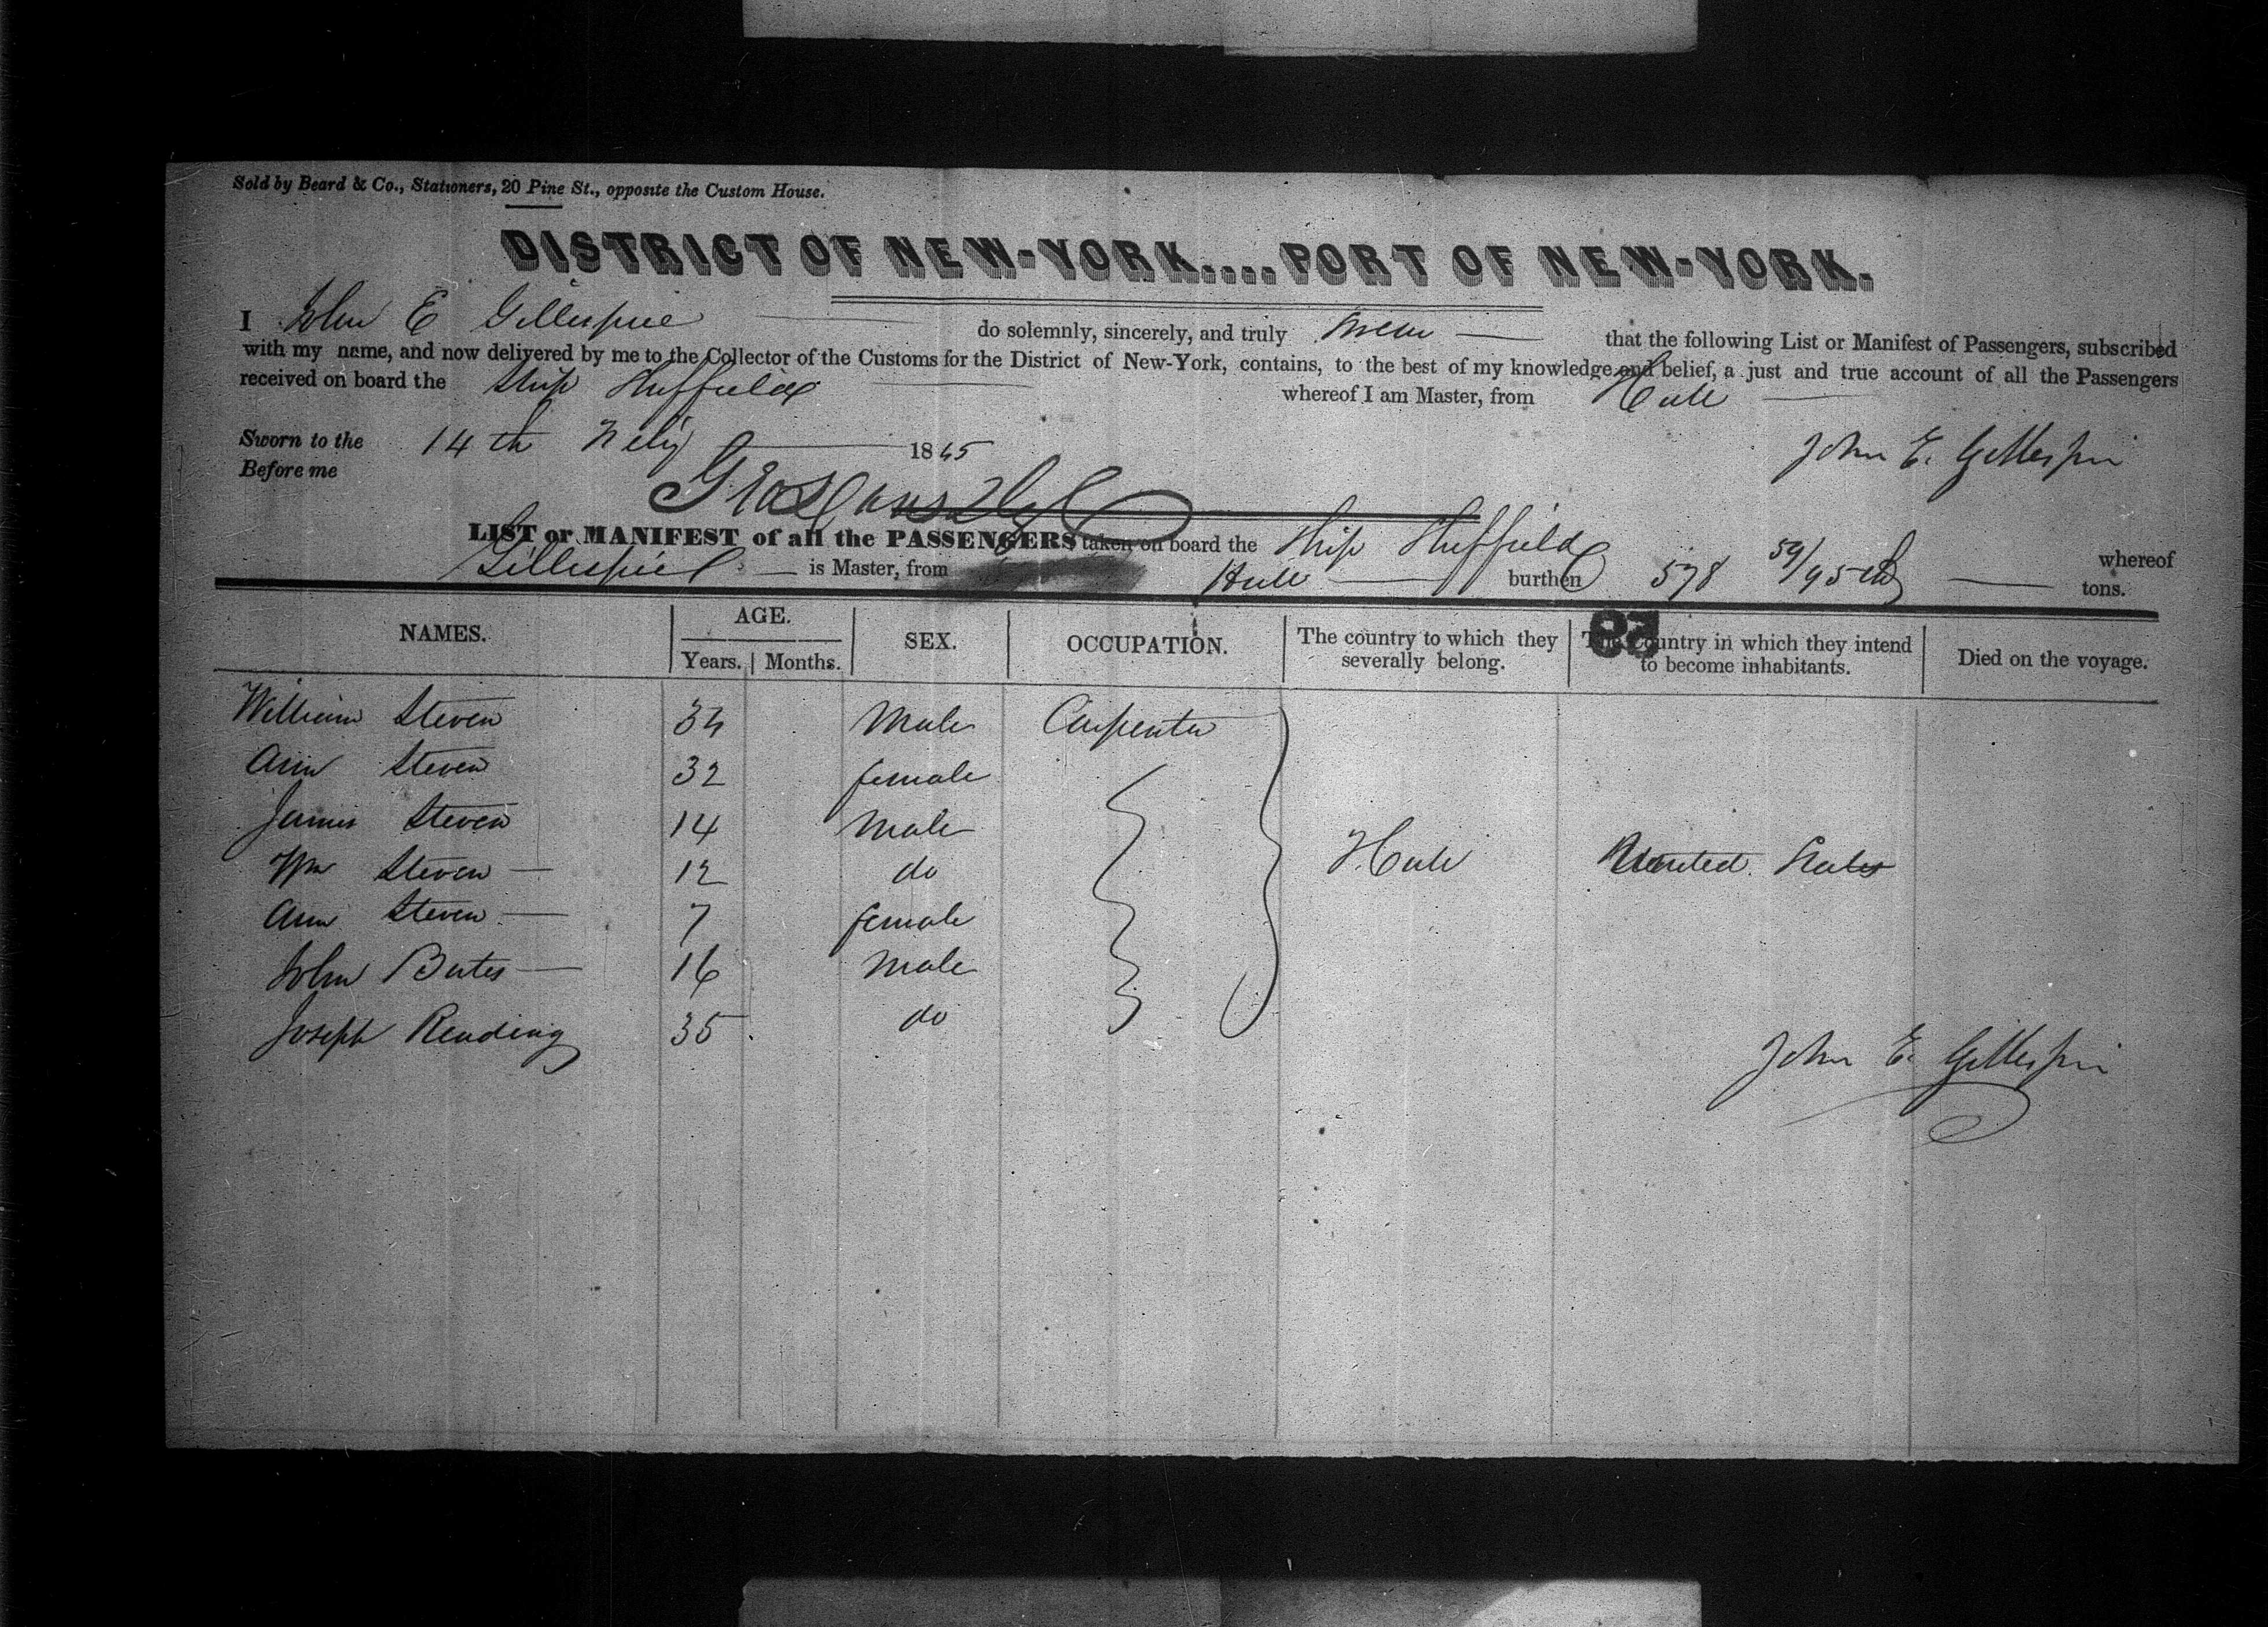 Sold by Beard & Co., Stationers, 20 Pine St., opposite the Custom House.
DISTRICT OF NEW-YORK....PORT OF NEW-YORK.
I John E Gillespie do solemnly, sincerely, and truly swear that the following List or Manifest of Passengers, subscribed
with my name, and now delivered by me to the Collector of the Customs for the District of New-York, contains, to the best of my knowledge and belief, a just and true account of all the Passengers
received on board the Ship Sheffield whereof I am Master, from Hull
Sworn to the 14th 1845 John E. Gillespie
Before me
LIST or MANIFEST of all the PASSENGERS taken on board the Ship Sheffield whereof
Gillespie is Master, from Hull burthen 578 59/95ths tons.
NAMES. AGE. Years. Months. SEX. OCCUPATION. The country to which they severally belong. The country in which they intend to become inhabitants. Died on the voyage.
William Steven 34 Male Carpenter
Ann Steven 32 female
James Steven 14 Male
Wm Steven 12 do Hull United States
Ann Steven 7 female
John Bates 16 Male
Joseph Reading 35 do
John E. Gillespie